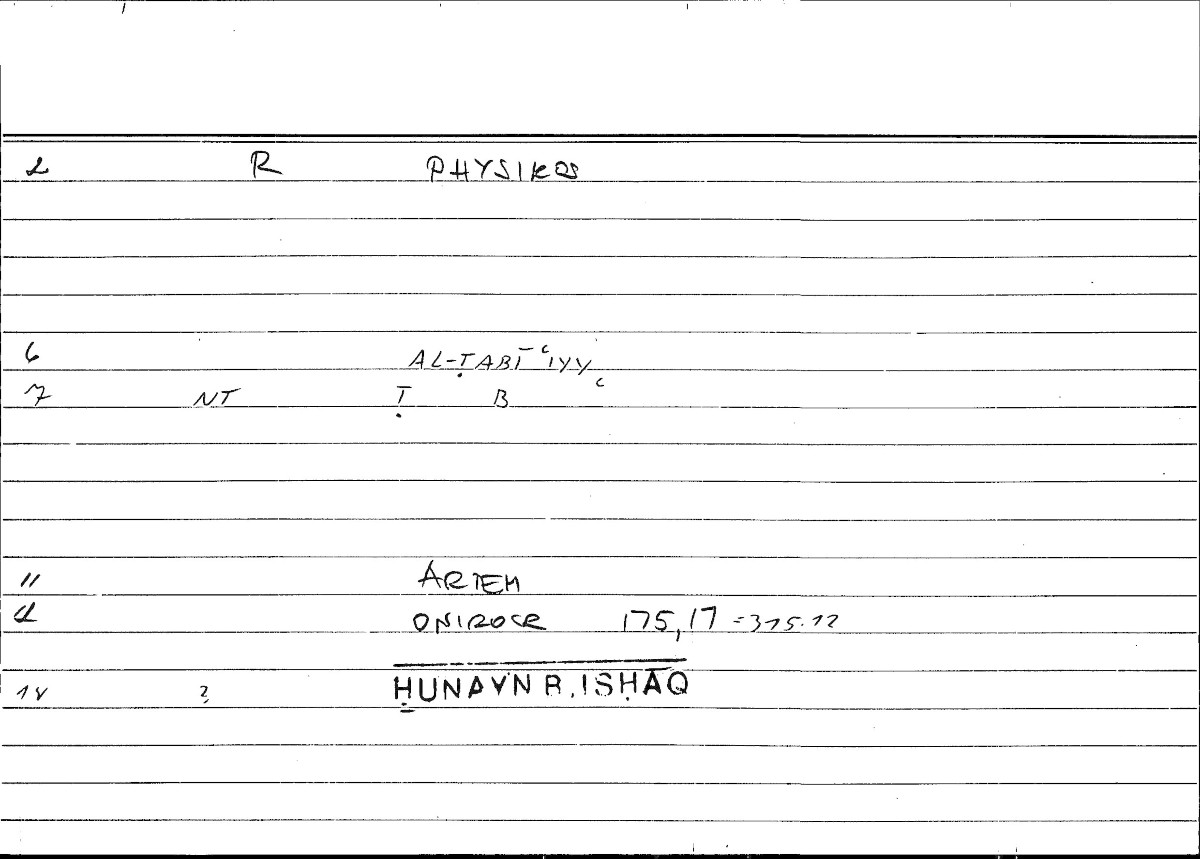 2 R PHYSIKOS
6 AL-ṬABĪʿIYY
7 NT Ṭ B ʿ
11 ARTEM
ONIROCR 175,17 =315.12
? ḤUNAYN B. ISḤĀQ